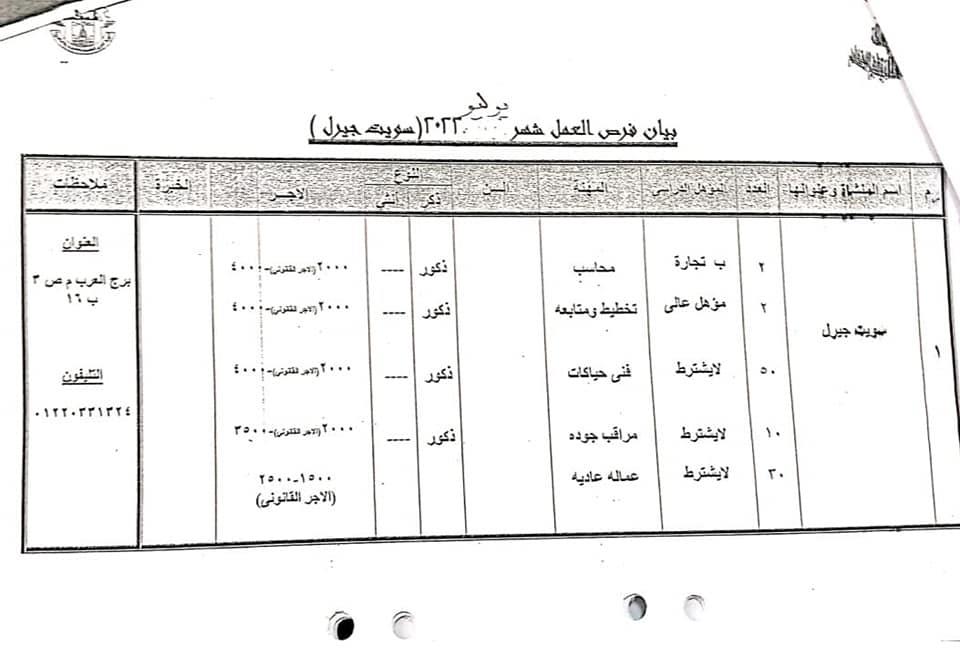 يوليو
بيان فرص العمل شهر ٢٠٢٢ (سويت جيرل)
م اسم المنشاة وعنوانها العدد المؤهل الدراسى المهنة السن النوع الاجر الخبرة ملاحظات
ذكر أنثي
١ سويت جيرل
٢ ب تجارة محاسب ذكور ---- ٢٠٠٠(الاجر القانونى)-٤٠٠٠
٢ مؤهل عالى تخطيط ومتابعه ذكور ---- ٢٠٠٠(الاجر القانونى)-٤٠٠٠
٥٠ لايشترط فنى حياكات ذكور ---- ٢٠٠٠(الاجر القانونى)-٤٠٠٠
١٠ لايشترط مراقب جوده ذكور ---- ٢٠٠٠(الاجر القانونى)-٣٥٠٠
٣٠ لايشترط عماله عاديه ١٥٠٠-٢٥٠٠
(الاجر القانونى)
العنوان
برج العرب م ص ٣
ب ١٦
التليفون
٠١٢٢٠٣٣١٣٢٤